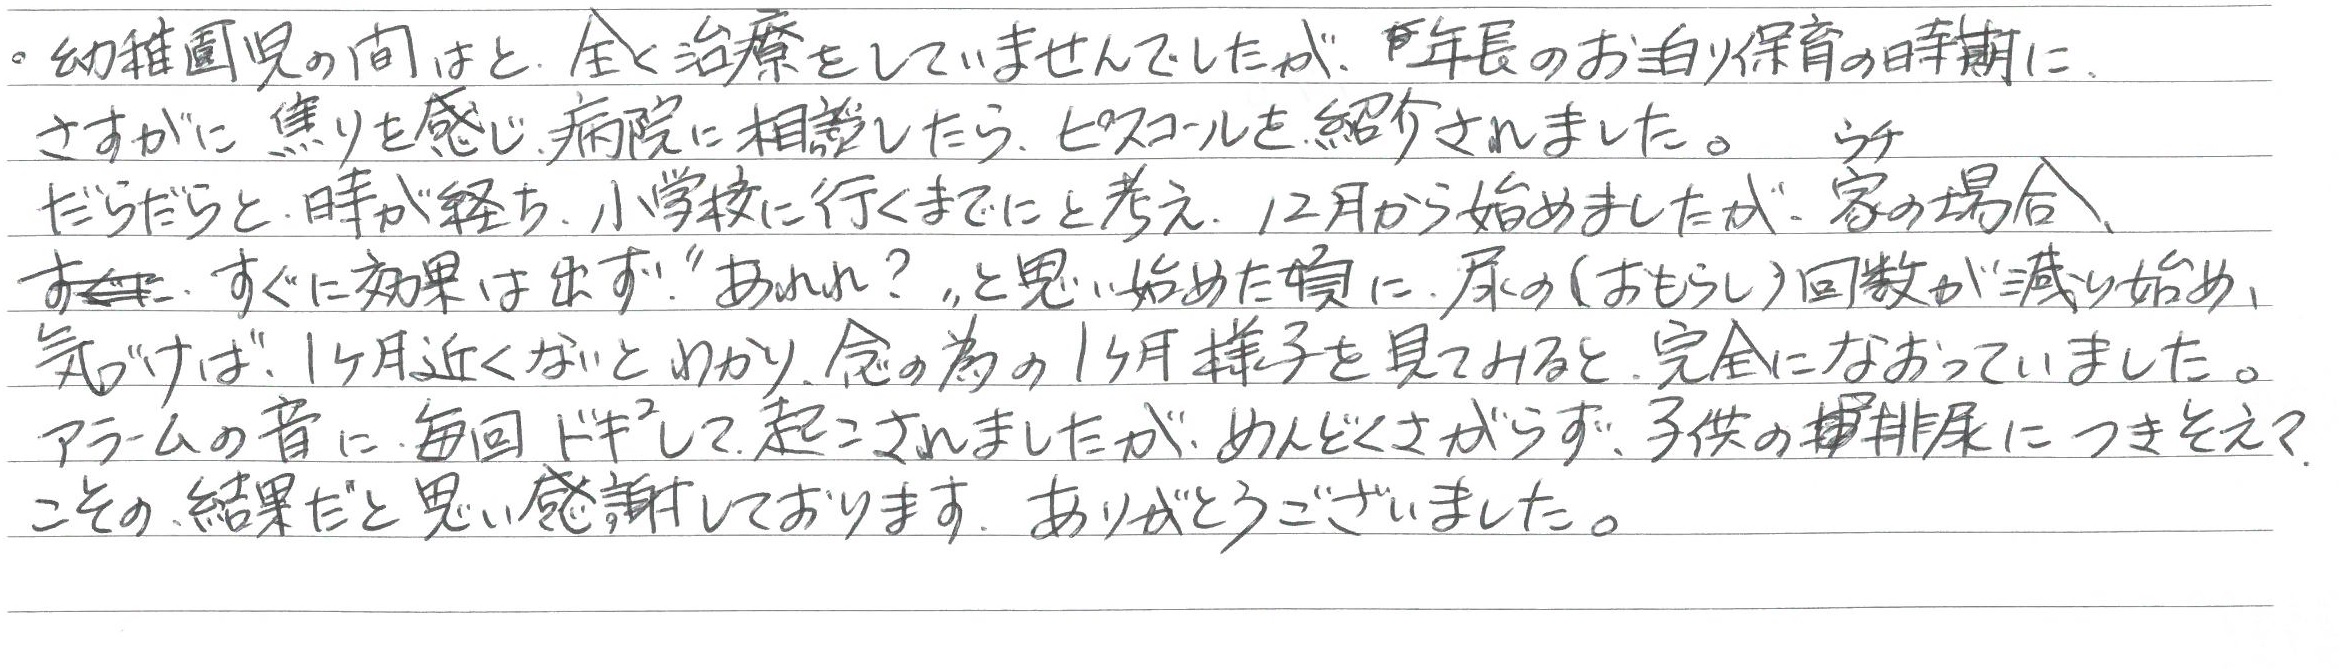 。幼稚園児の間はと、全く治療をしていませんでしたが、年長のお泊り保育の時期に、
さすがに焦りを感じ、病院に相談したら、ピスコールを紹介されました。
だらだらと、時が経ち、小学校に行くまでにと考え、12月から始めましたが、家(ウチ)の場合、
すぐに効果は出ず、"あれれ?"と思い始めた頃に、尿の(おもらし)回数が減り始め、
気づけば、1ヶ月近くないとわかり、念の為の1ヶ月様子を見てみると、完全になおっていました。
アラームの音に、毎回ドキ²して、起こされましたが、めんどくさがらず、子供の排尿につきそえて、
こその、結果だと思い感謝しております。ありがとうございました。